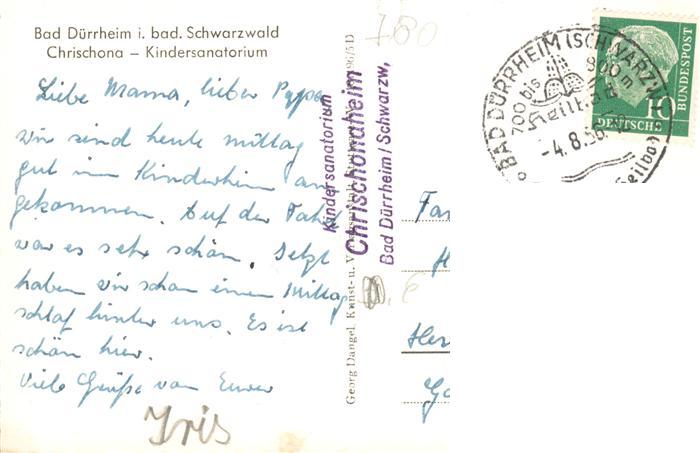 Bad Dürrheim i. bad. Schwarzwald
Chrischona – Kindersanatorium
Liebe Mama, lieber Pappa
wir sind heute mittag
gut im Kinderheim an
gekommen. Auf der Fahrt
war es sehr schön. Jetzt
haben wir schon einen Mittag
schlaf hinter uns. Es ist
schön hier.
Viele Grüße von Eurer
Iris
Kindersanatorium
Chrischonaheim
Bad Dürrheim / Schwarzw,
Georg Dangel, Kunst- u. V
96/5 D
780
6
BAD DÜRRHEIM (SCHWARZW
700 bis
800 m
Heilb
-4.8.58
eilba
10
DEUTSCHE
BUNDESPOST
Fa
H
Her